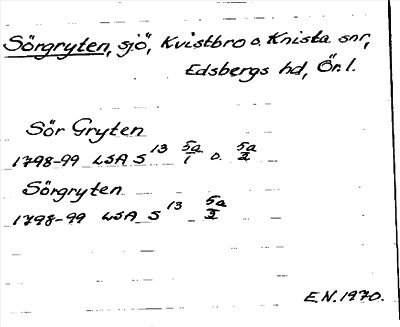 Sörgryten, sjö, Kvistbro o. Knista snr,
Edsbergs hd, Ör. l.
Sör Gryten
1798-99 LSA S 13 5a/1 o. 5a/2
Sörgryten
1798-99 LSA S 13 5a/2
E.N. 1970.